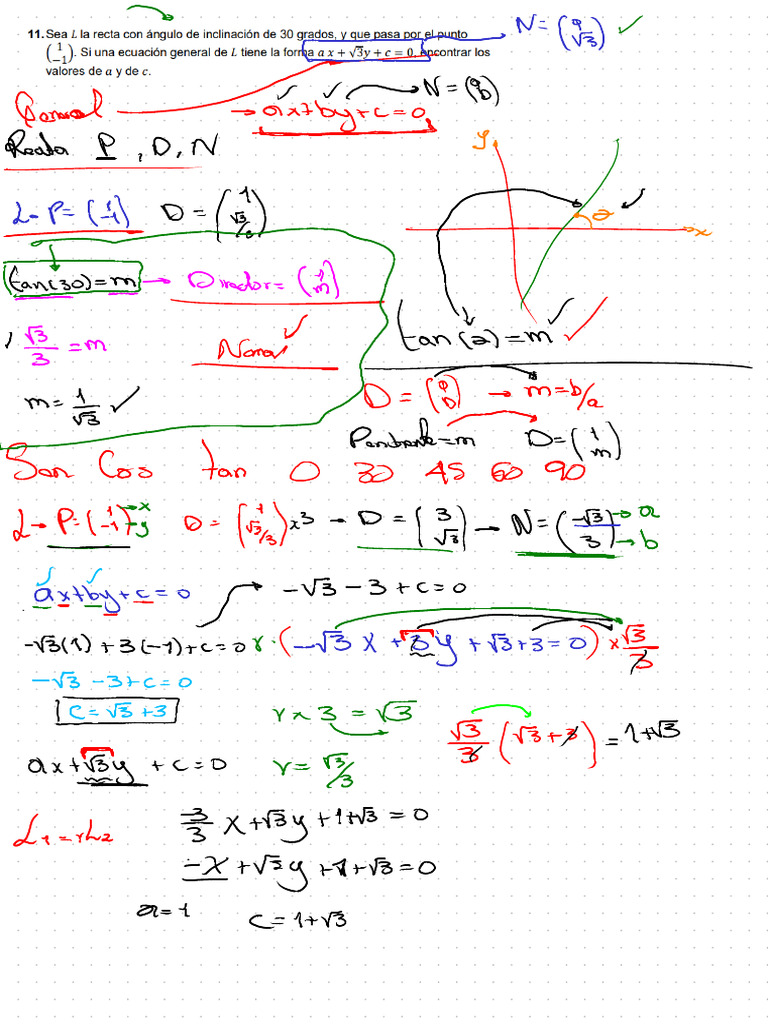 11. Sea L la recta con ángulo de inclinación de 30 grados, y que pasa por el punto
(1 -1). Si una ecuación general de L tiene la forma a x + √3y + c = 0, encontrar los
valores de a y de c.
N = (a √3) ✓
General → ax+by+c=0 N = (a b)
Recta P, D, N
y
x
2
L → P = (1 -1) D = (1 √3/3)
tan(30) = m → Director = (1 m)
tan(2) = m ✓
√3/3 = m Normal ✓
m = 1/√3 ✓
D = (a b) → m = b/a
Pendiente = m D = (1 m)
Sen Cos tan 0 30 45 60 90
L → P = (1 -1) → x → y D = (1 √3/3) x3 → D = (3 √3) → N = (-√3 3) → a → b
ax+by+c=0 → -√3 - 3 + c = 0
-√3(1) + 3(-1) + c = 0 r · (-√3 x + 3y + √3+3 = 0) × √3/3
-√3 - 3 + c = 0
c = √3 + 3
r x 3 = √3 √3/3 (√3 + 3) = 1+√3
ax + √3y + c = 0 r = √3/3
L1 = rL2
-3/3 x + √3y + 1+√3 = 0
-x + √3y + 1 + √3 = 0
a = 1 c = 1+√3